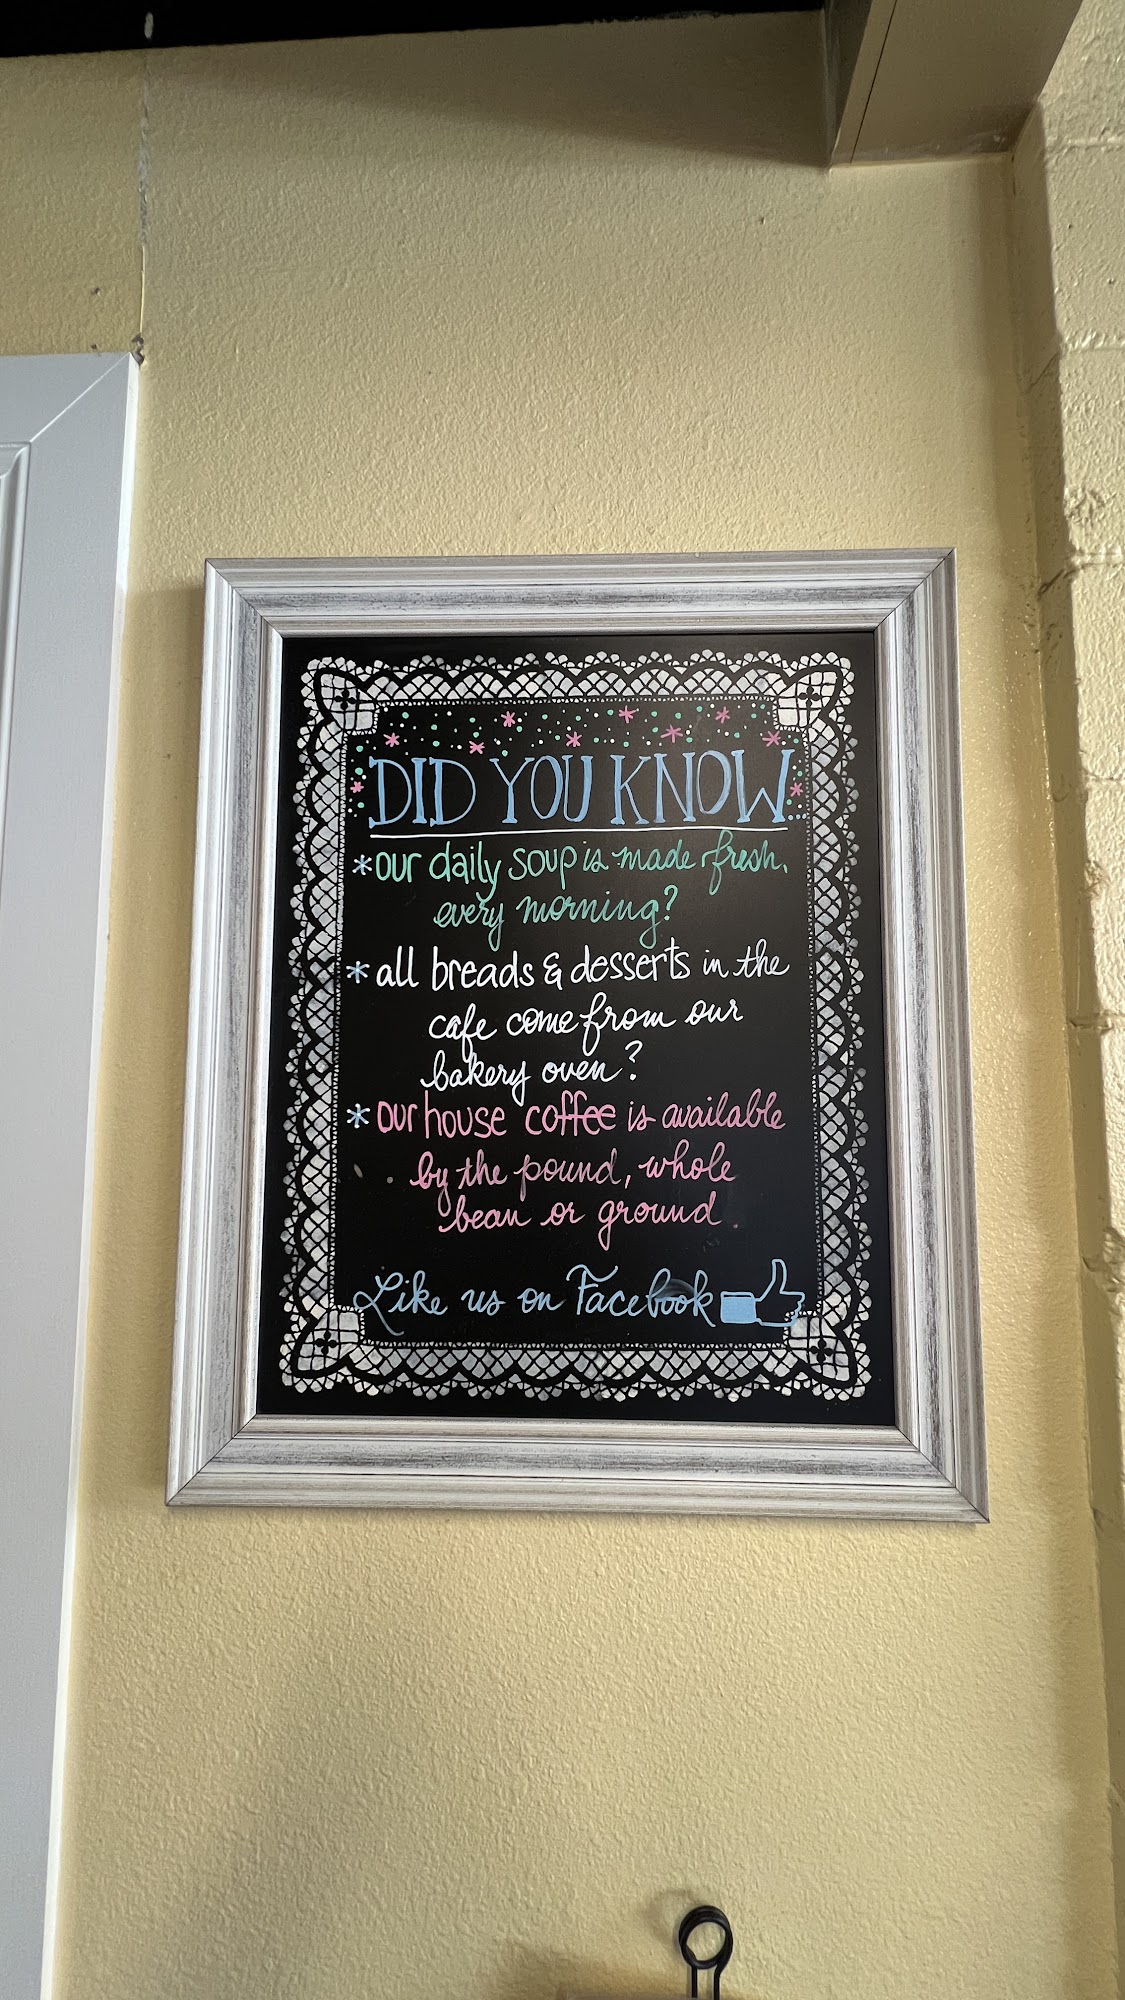 DID YOU KNOW...
*our daily soup is made fresh,
every morning?
*all breads & desserts in the
cafe come from our
bakery oven?
*our house coffee is available
by the pound, whole
bean or ground.
Like us on Facebook